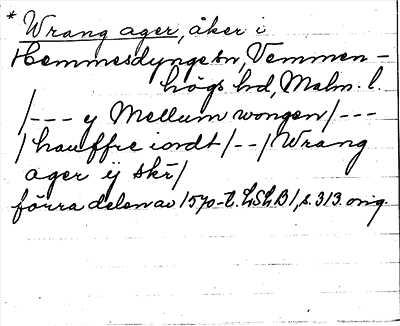 * Wrang ager, åker i
Hemmesdynge sn, Vemmen-
högs hd, Malm. l.
/--- y Mellum wongen/---
/hauffre iordt/--/Wrang
ager ij skr̄/
förra delen av 1570-t. LSLB1, s. 313. orig.